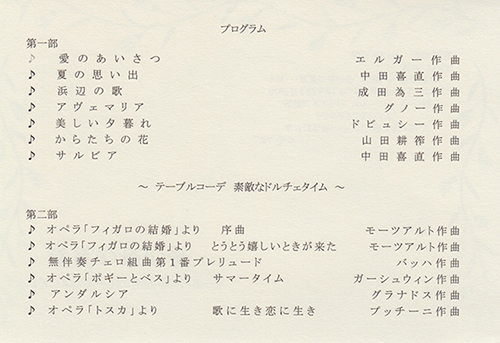 プログラム
第一部
♪ 愛のあいさつ エルガー作曲
♪ 夏の思い出 中田喜直作曲
♪ 浜辺の歌 成田為三作曲
♪ アヴェマリア グノー作曲
♪ 美しい夕暮れ ドビュシー作曲
♪ からたちの花 山田耕筰作曲
♪ サルビア 中田喜直作曲
～ テーブルコーデ 素敵なドルチェタイム ～
第二部
♪ オペラ「フィガロの結婚」より 序曲 モーツアルト作曲
♪ オペラ「フィガロの結婚」より とうとう嬉しいときが来た モーツアルト作曲
♪ 無伴奏チェロ組曲第1番プレリュード バッハ作曲
♪ オペラ「ポギーとベス」より サマータイム ガーシュウィン作曲
♪ アンダルシア グラナドス作曲
♪ オペラ「トスカ」より 歌に生き恋に生き プッチーニ作曲